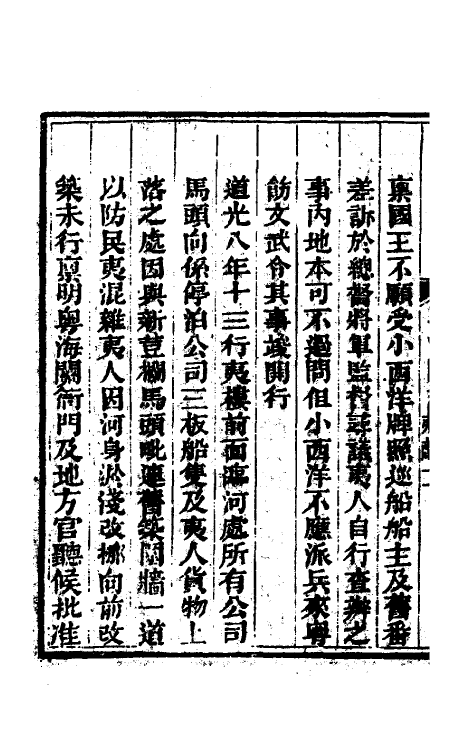 稟國王不願受小西洋牌縣逐船船主及舊番
差訴於總督將軍監督諱議夷人自行查辦之
事內地本可不過問但小西洋不應派兵來粵
飭文武令其事竣開行
道光八年十三行夷樓前面臨河處所有公司
馬頭向係停泊公司三板船隻及夷人貨物上
落之處因與新荳欄馬頭毗連舊築闌牆一道
以防民夷混雜夷人因河身淤淺改挪向前改
築未行稟明粵海關衙門及地方官聽候批准